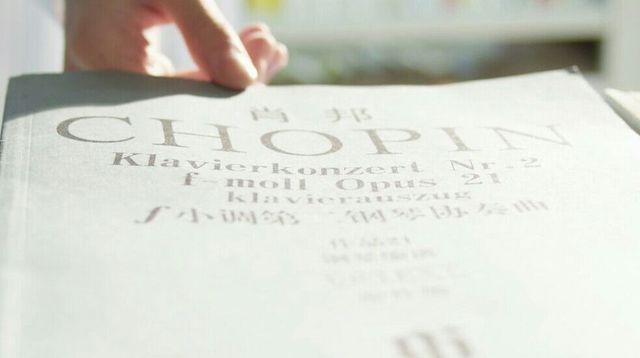 肖邦
CHOPIN
Klavierkonzert Nr. 2
f-moll Opus 21
klavierauszug
f小调第二钢琴协奏曲
作品21
URTEXT